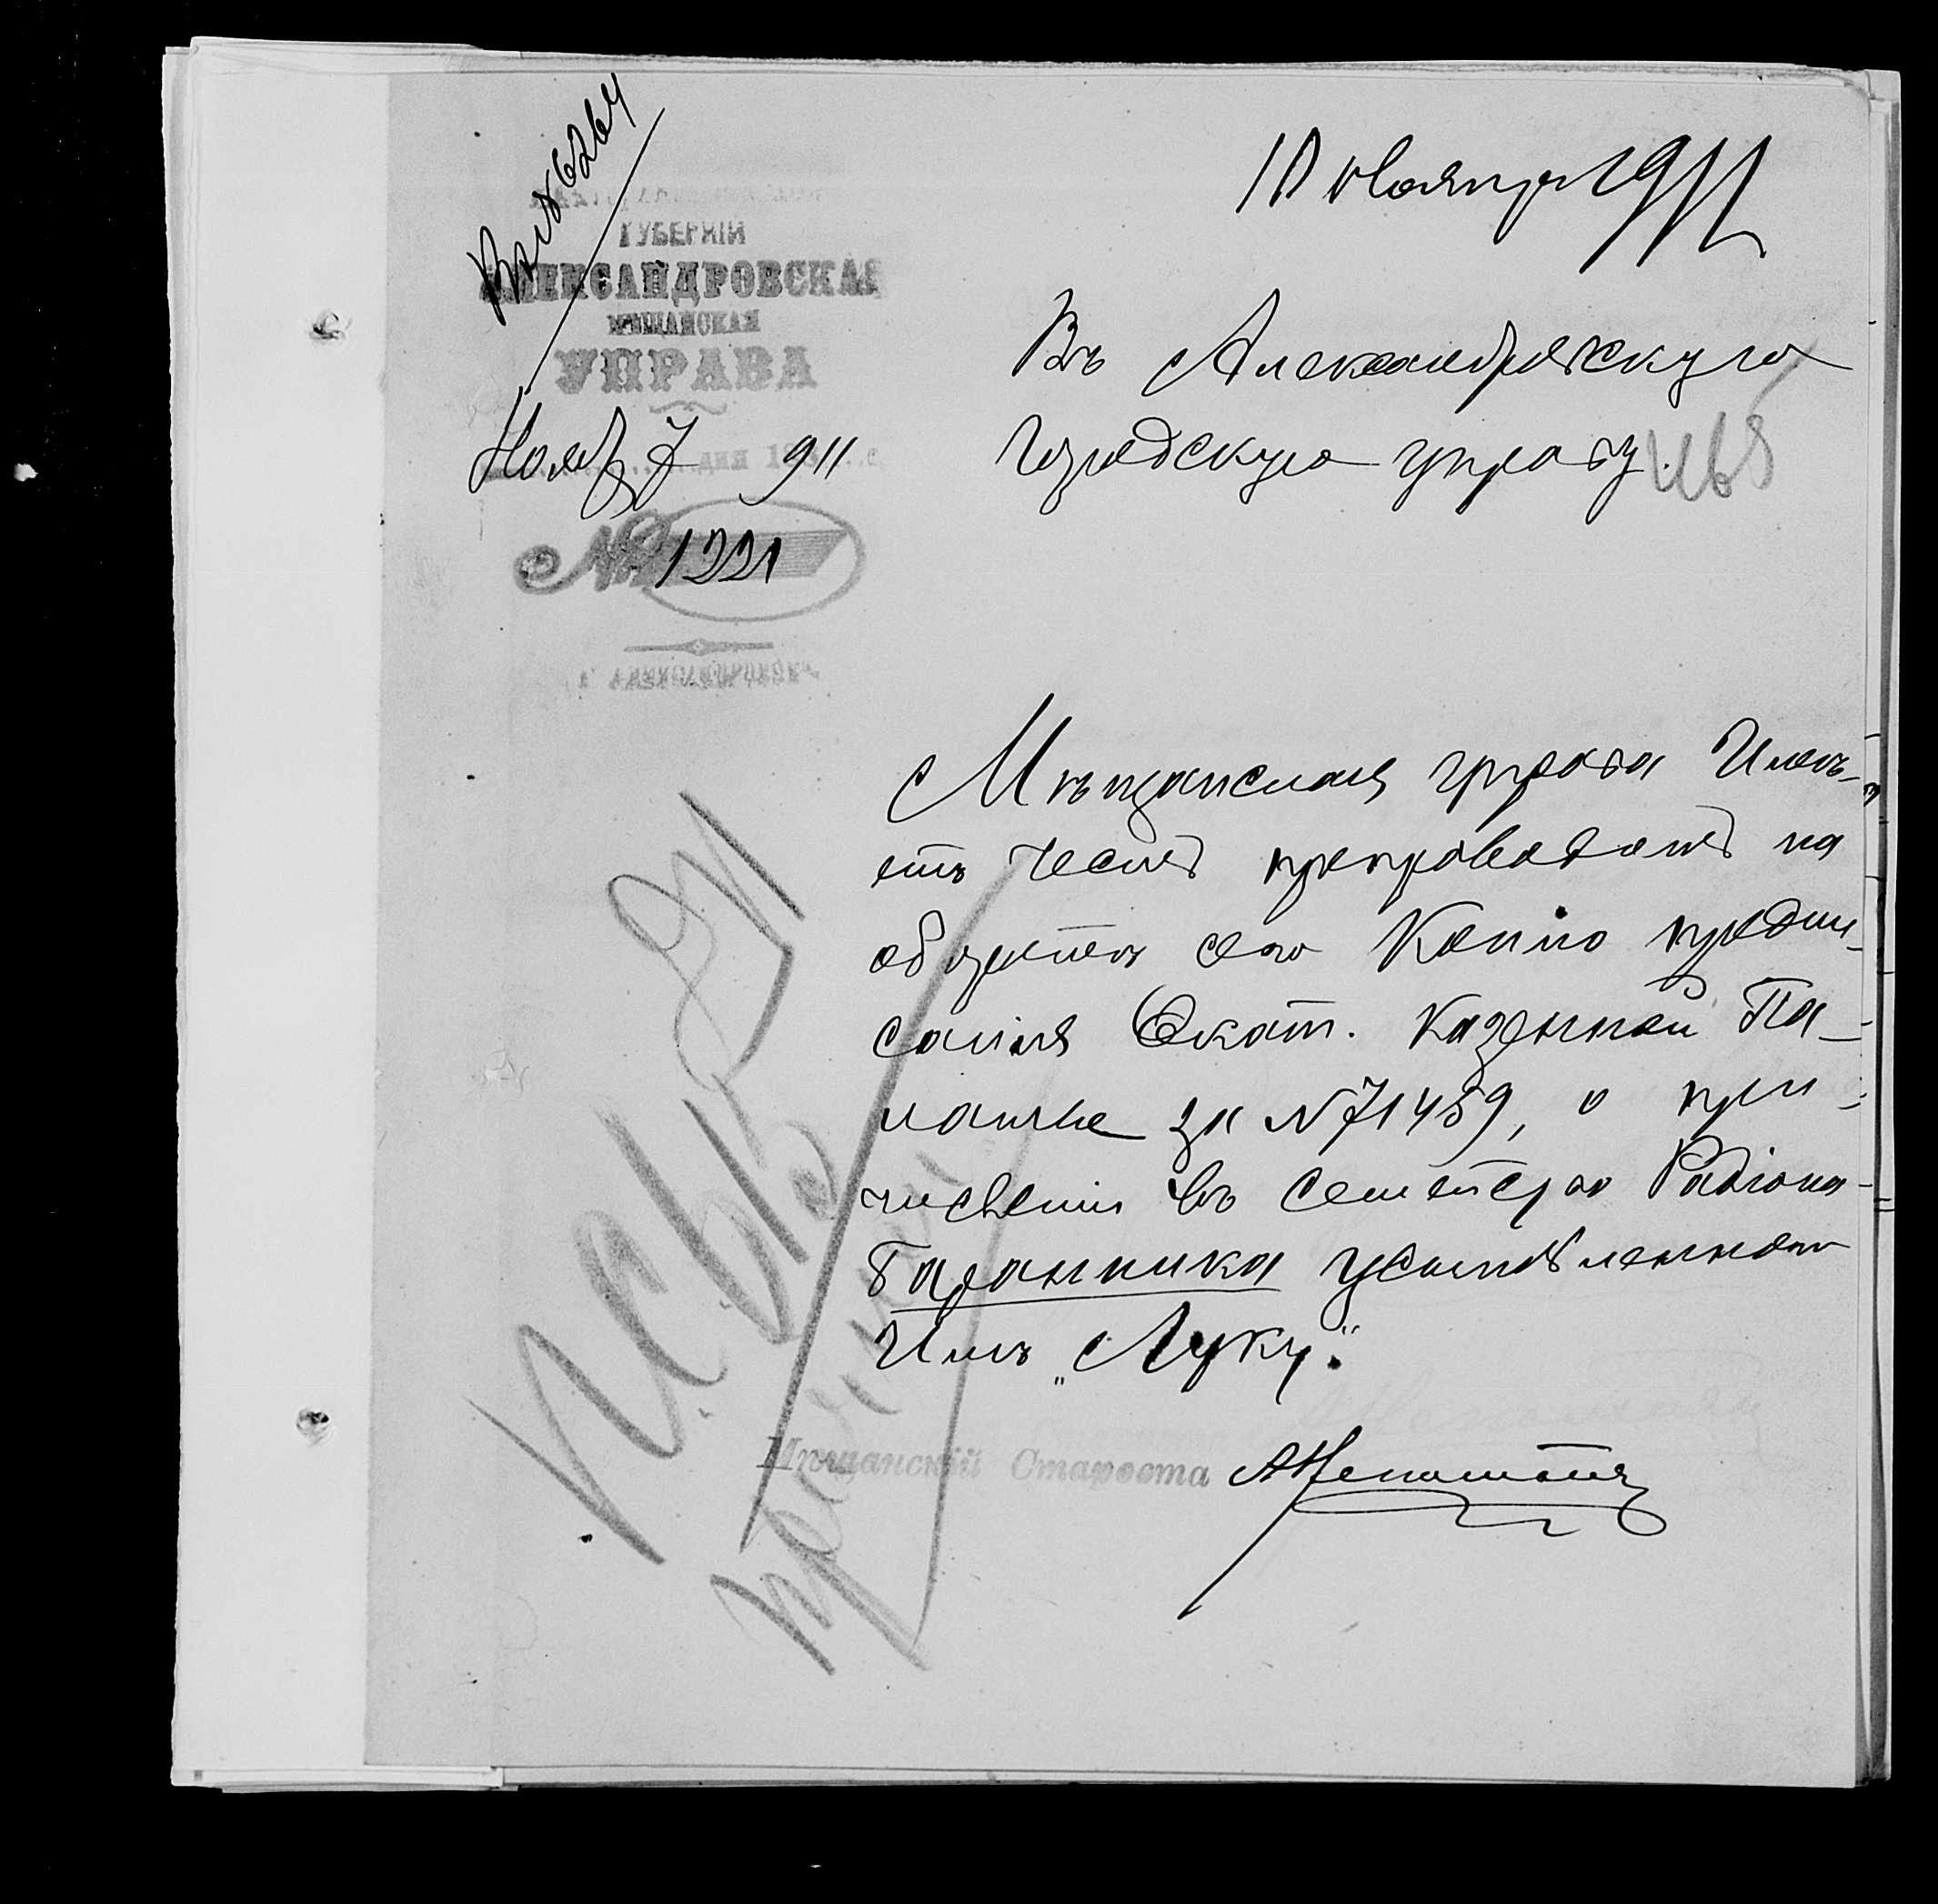 Вх 6264
ГУБЕРНІИ
АЛЕКСАНДРОВСКАЯ
МѢЩАНСКАЯ
УПРАВА
Нояб 7 дня 1911
№ 1221
Г. АЛЕКСАНДРОВСКЪ
10 Ноября 1911
Въ Александровскую
Городскую управу.
Мѣщанская управа Имѣ-
етъ честь препроводить на
оборотѣ сего Копію предпи-
санія Екат. Казенной Па-
латы за № 71459, о при-
численіи въ семейство Радіона
Баранника усыновленнаго
Имъ „Луку“.
Мѣщанскій Староста